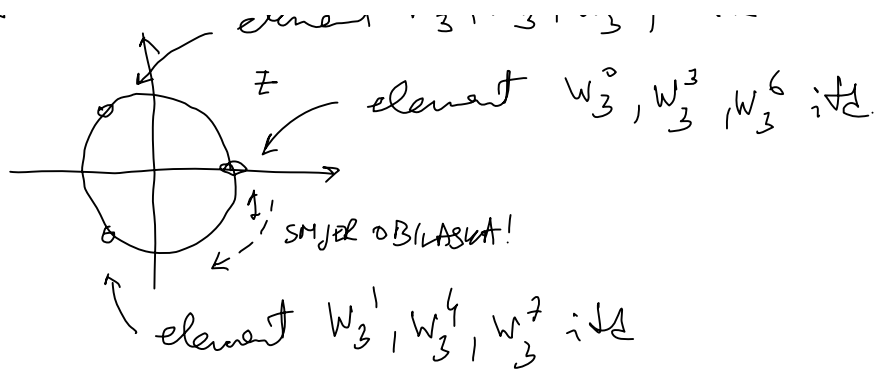 element
z
element W₃⁰, W₃³, W₃⁶ itd.
1
SMJER OBILASKA!
element W₃¹, W₃⁴, W₃⁷ itd